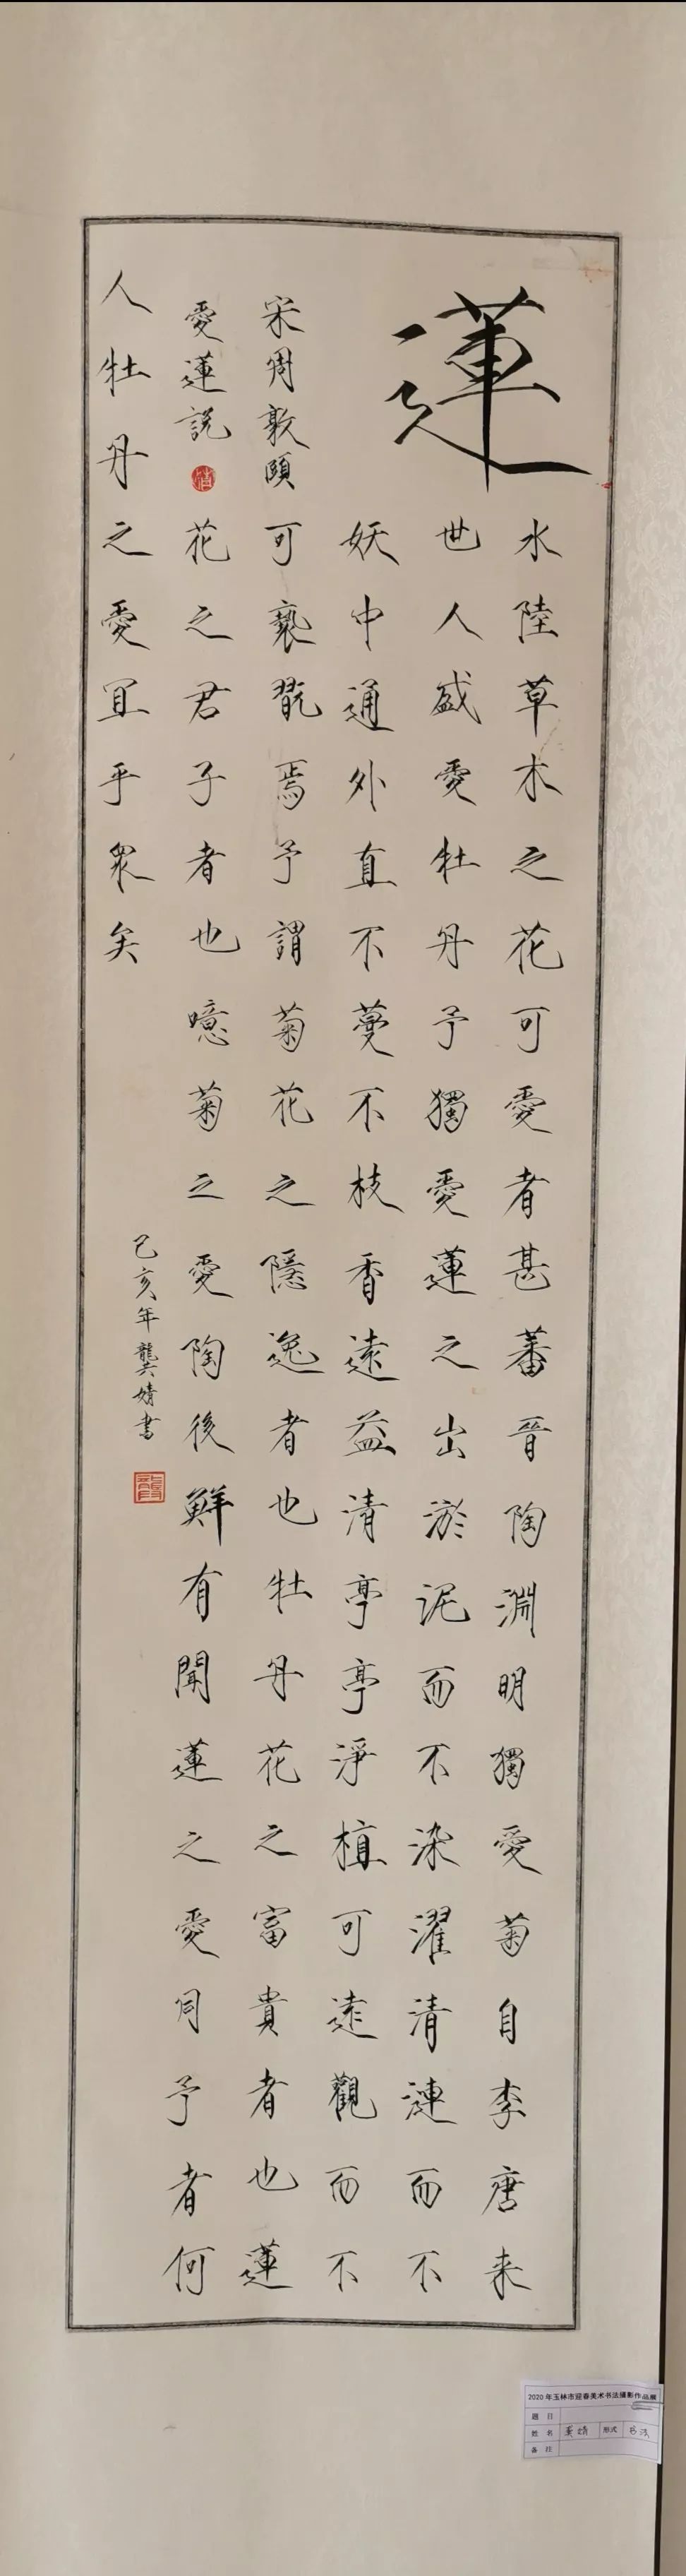 蓮
水陸草木之花可愛者甚蕃晉陶淵明獨愛菊自李唐来
世人盛愛牡丹予獨愛蓮之出淤泥而不染濯清漣而不
妖中通外直不蔓不枝香遠益清亭亭淨植可遠觀而不
宋周敦頤
可褻翫焉予謂菊花之隱逸者也牡丹花之富貴者也蓮
愛蓮説
花之君子者也噫菊之愛陶後鮮有聞蓮之愛同予者何
人牡丹之愛宜乎衆矣
己亥年龔婧書
2020年玉林市迎春美术书法摄影作品展
题 目
姓 名
形式 书法
备 注